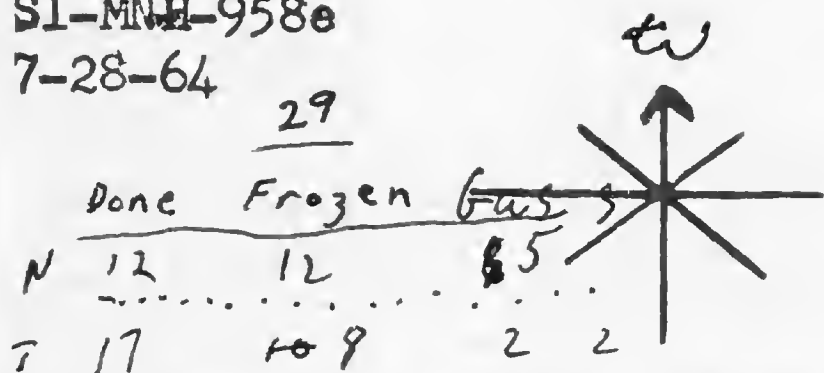 SI-MNH-958e
7-28-64
29
Done Frozen Gas s
N 12 12 5
I 17 9 2 2